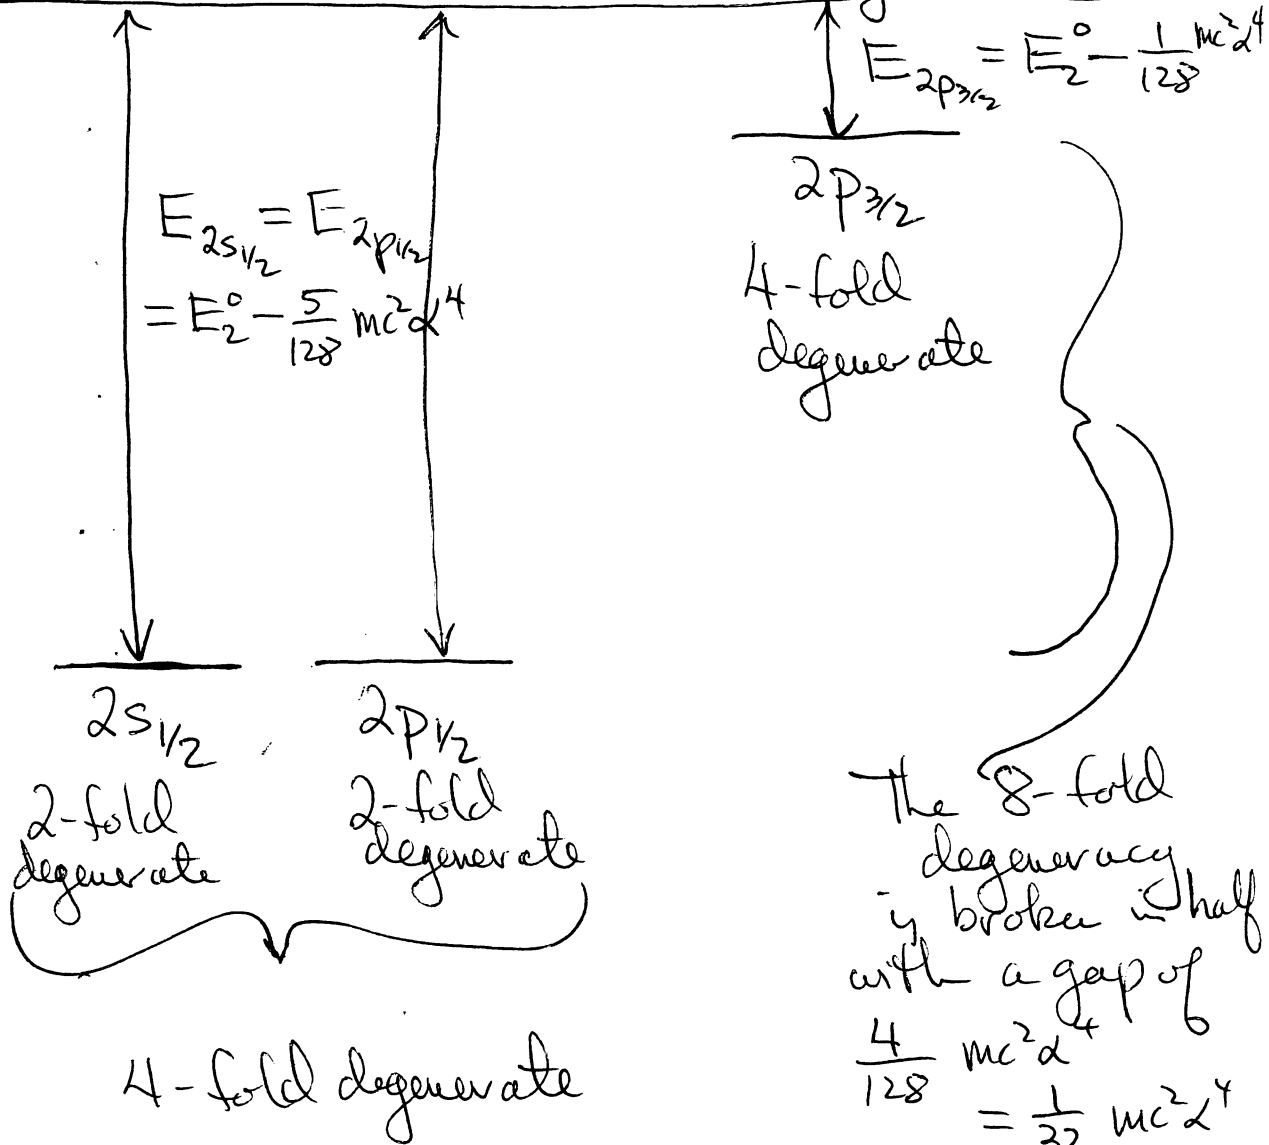 E₂ₚ₃/₂ = E₂⁰ - 1/128 mc²α⁴
2p₃/₂
4-fold
degenerate
E₂ₛ₁/₂ = E₂ₚ₁/₂
= E₂⁰ - 5/128 mc²α⁴
2s₁/₂
2-fold
degenerate
2p₁/₂
2-fold
degenerate
4-fold degenerate
The 8-fold
degeneracy
is broken in half
with a gap of
4/128 mc²α⁴
= 1/32 mc²α⁴